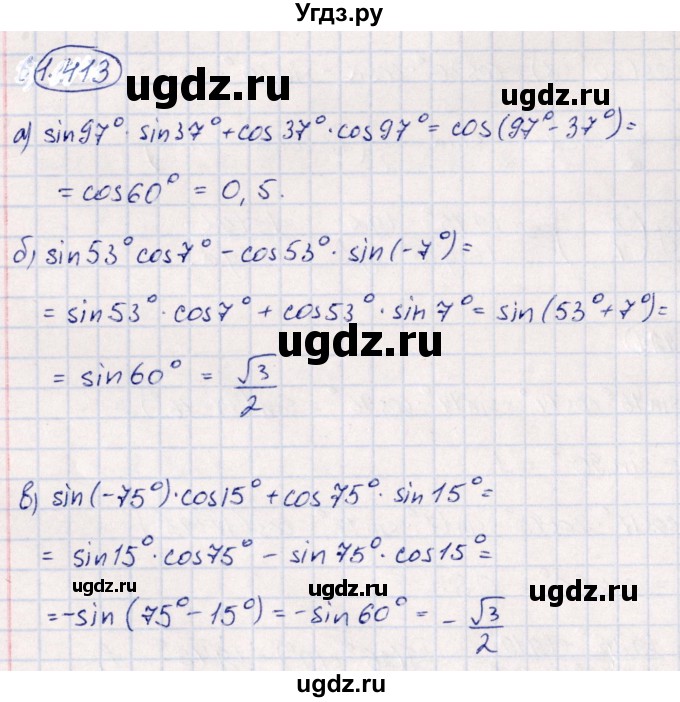 Угдз.ру
1.413
ugdz.ru
а) sin97°· sin37°+cos 37°·cos97°= cos(97°-37°)=
= cos60° = 0,5.
ugdz.ru
б) sin53°cos7° - cos53°· sin(-7°)=
= sin53°· cos7° + cos53°· sin7°= sin(53°+7°)=
ugdz.ru
= sin60° = √3/2
ugdz.ru
в) sin(-75°)·cos15°+cos75°· sin15°=
= sin15°·cos75° - sin75°· cos15°=
ugdz.ru ugdz.ru ugdz.ru
=-sin(75°-15°)=-sin60°= - √3/2
ugdz.ru